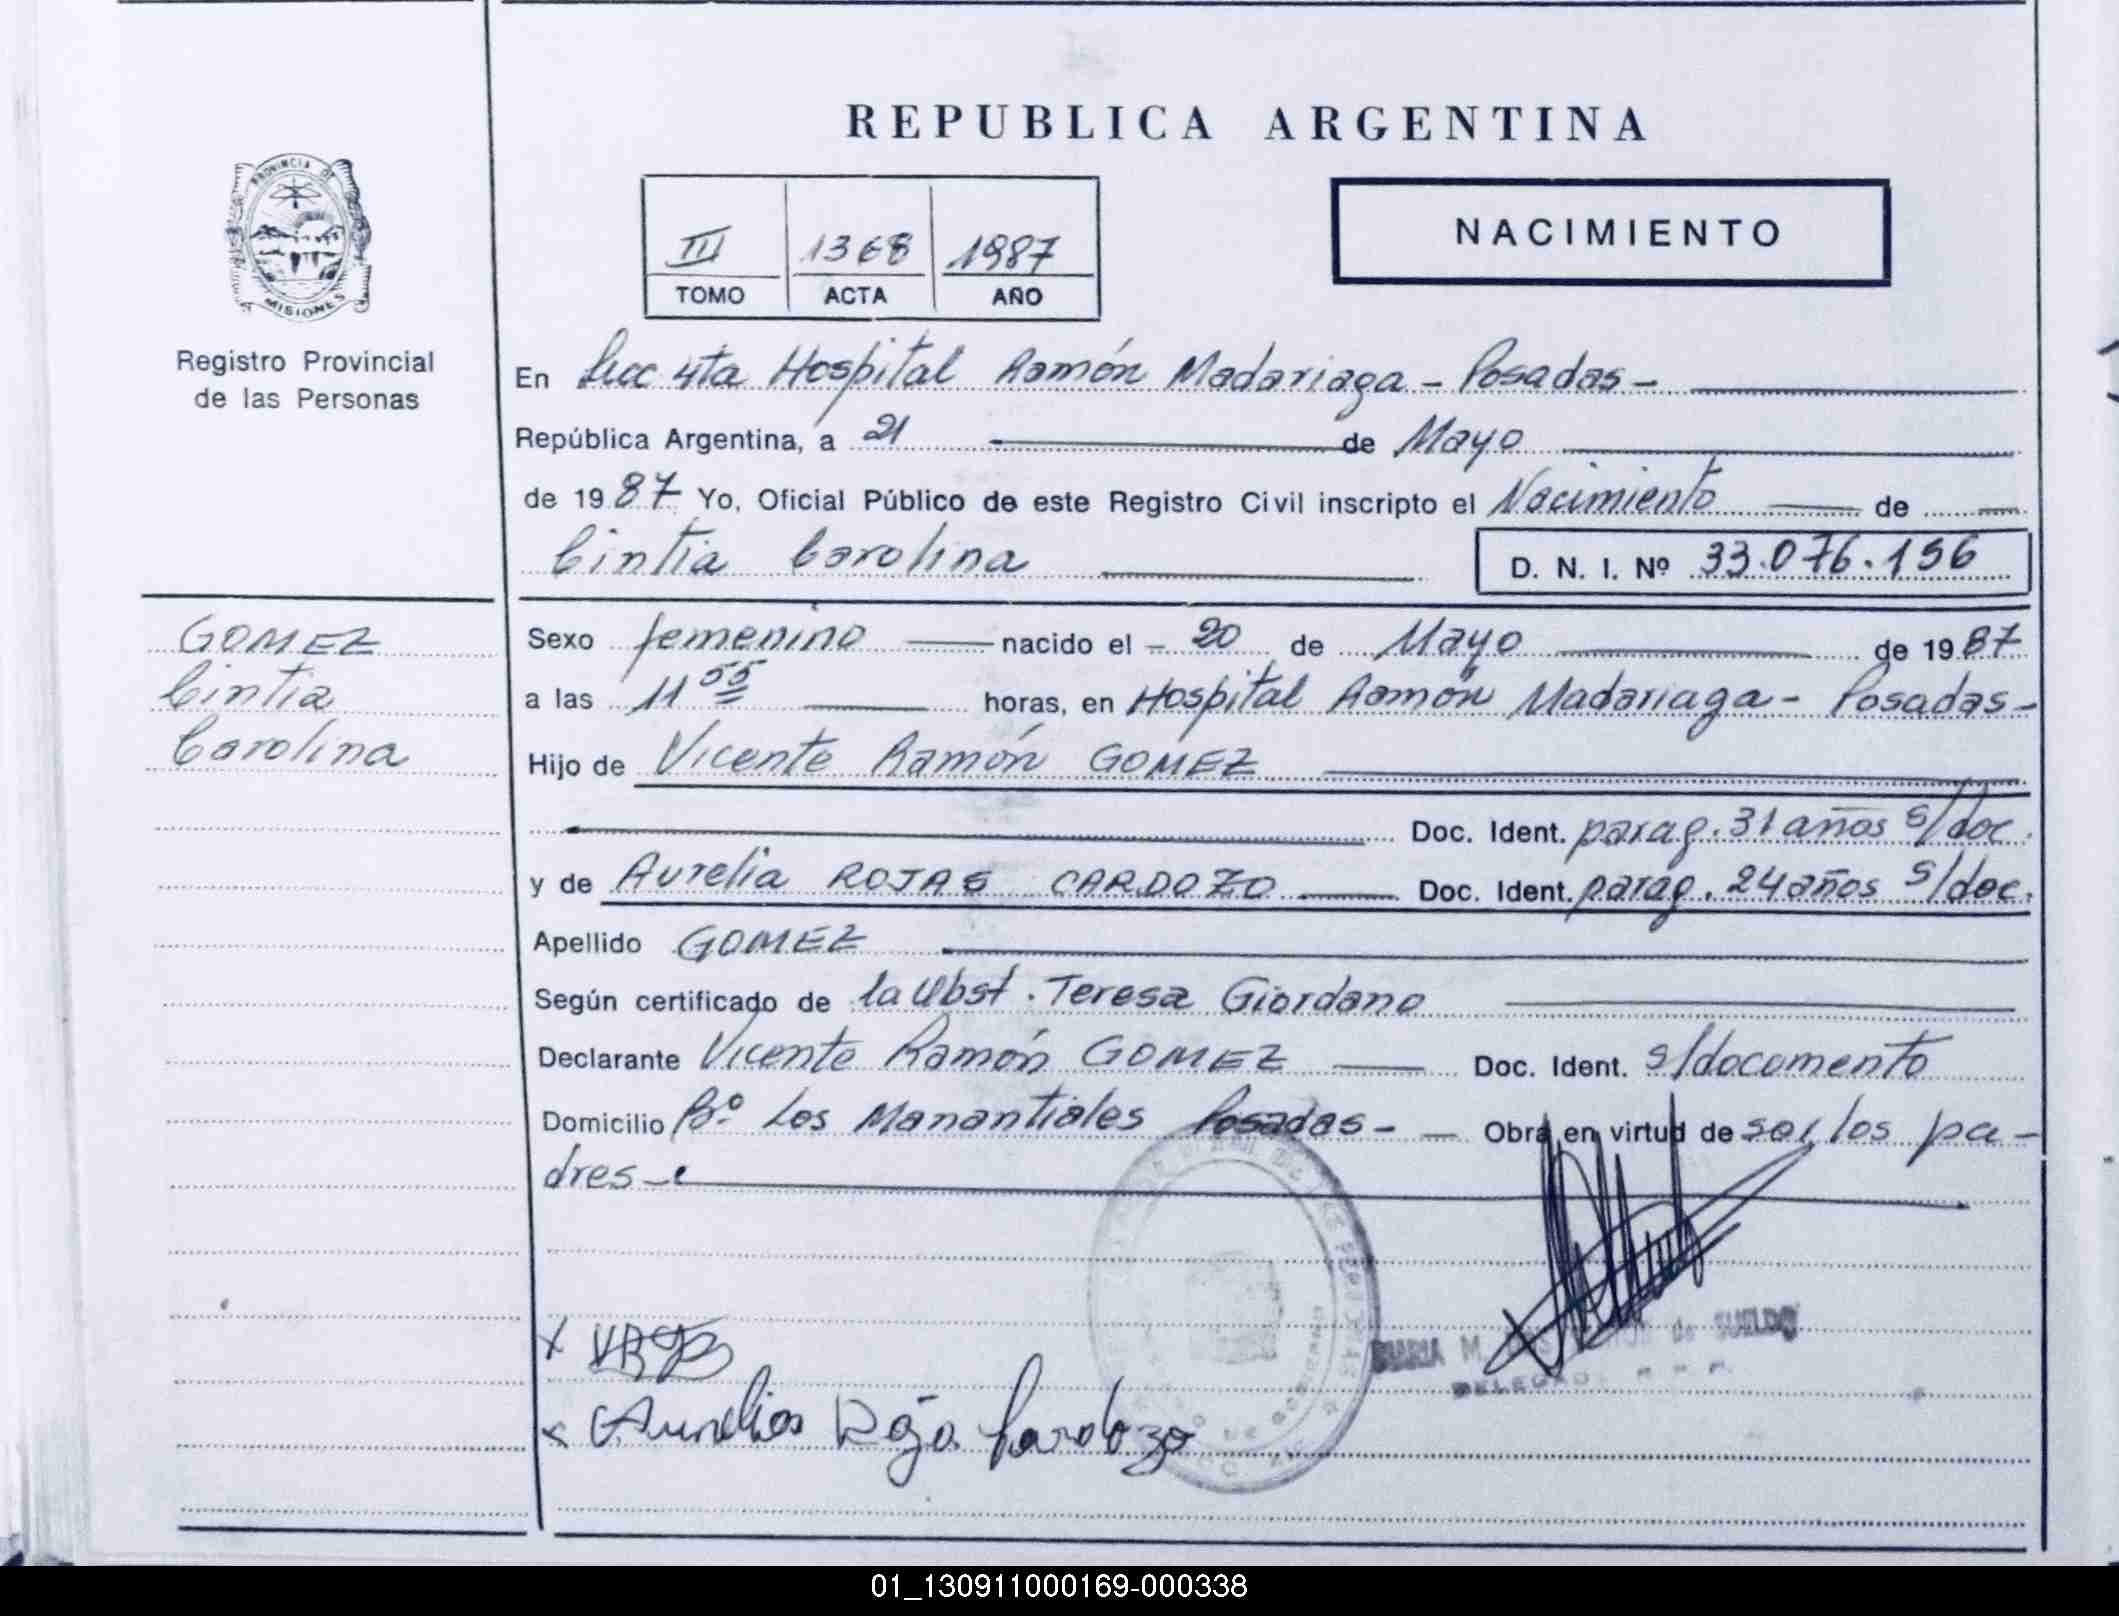 REPUBLICA ARGENTINA
PROVINCIA DE
MISIONES
Registro Provincial
de las Personas
III 1368 1987
TOMO ACTA AÑO
NACIMIENTO
En Secc 4ta Hospital Ramón Madariaga - Posadas -
República Argentina, a 21 de Mayo
de 1987 Yo, Oficial Público de este Registro Civil inscripto el Nacimiento de
Cintia Carolina
D. N. I. Nº 33.076.156
GOMEZ
Cintia
Carolina
Sexo femenino nacido el - 20 de Mayo de 1987
a las 11 55 horas, en Hospital Ramón Madariaga - Posadas -
Hijo de Vicente Ramón GOMEZ
Doc. Ident. parag. 31 años s/doc.
y de Aurelia ROJAS CARDOZO Doc. Ident. parag. 24 años s/doc.
Apellido GOMEZ
Según certificado de la Obst. Teresa Giordano
Declarante Vicente Ramón GOMEZ Doc. Ident. s/documento
Domicilio Bº Los Manantiales Posadas - Obra en virtud de ser los pa-
dres
MARIA M. de SUELDO
x
x Aurelia Roja Cardozo
01_130911000169-000338